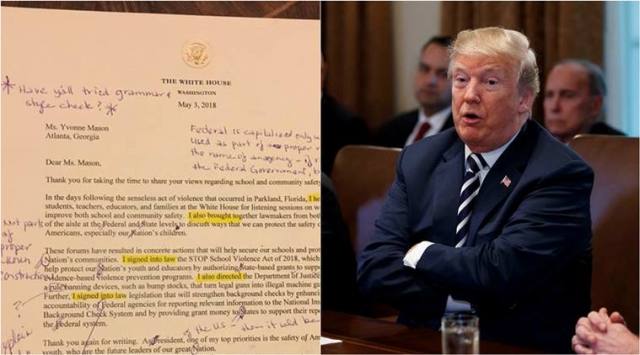 THE WHITE HOUSE
WASHINGTON
* Have y'all tried grammar &
style check? *
May 3, 2018
Ms. Yvonne Mason
Atlanta, Georgia
Federal is capitalized only
used as part of proper
the name of an agency
the Federal Government,
Dear Ms. Mason,
Thank you for taking the time to share your views regarding school and community safety
In the days following the senseless act of violence that occurred in Parkland, Florida, I
students, teachers, educators, and families at the White House for listening sessions on
improve both school and community safety. I also brought together lawmakers from both
of the aisle at the Federal and State levels to discuss ways that we can protect the safety
Americans, especially our Nation's children.
Not part
of
proper
noun
construction
These forums have resulted in concrete actions that will help secure our schools and
Nation's communities. I signed into law the STOP School Violence Act of 2018, which
help protect our Nation's youth and educators by authorizing State-based grants to
evidence-based violence prevention programs. I also directed the Department of Justice
a rule banning devices, such as bump stocks, that turn legal guns into illegal machine
Further, I signed into law legislation that will strengthen background checks by
accountability of Federal agencies for reporting relevant information to the National
Background Check System and by providing grant money to States to support their
the Federal system.
of the US
Thank you again for writing. As President, one of my top priorities is the safety of
youth, who are the future leaders of our great Nation.